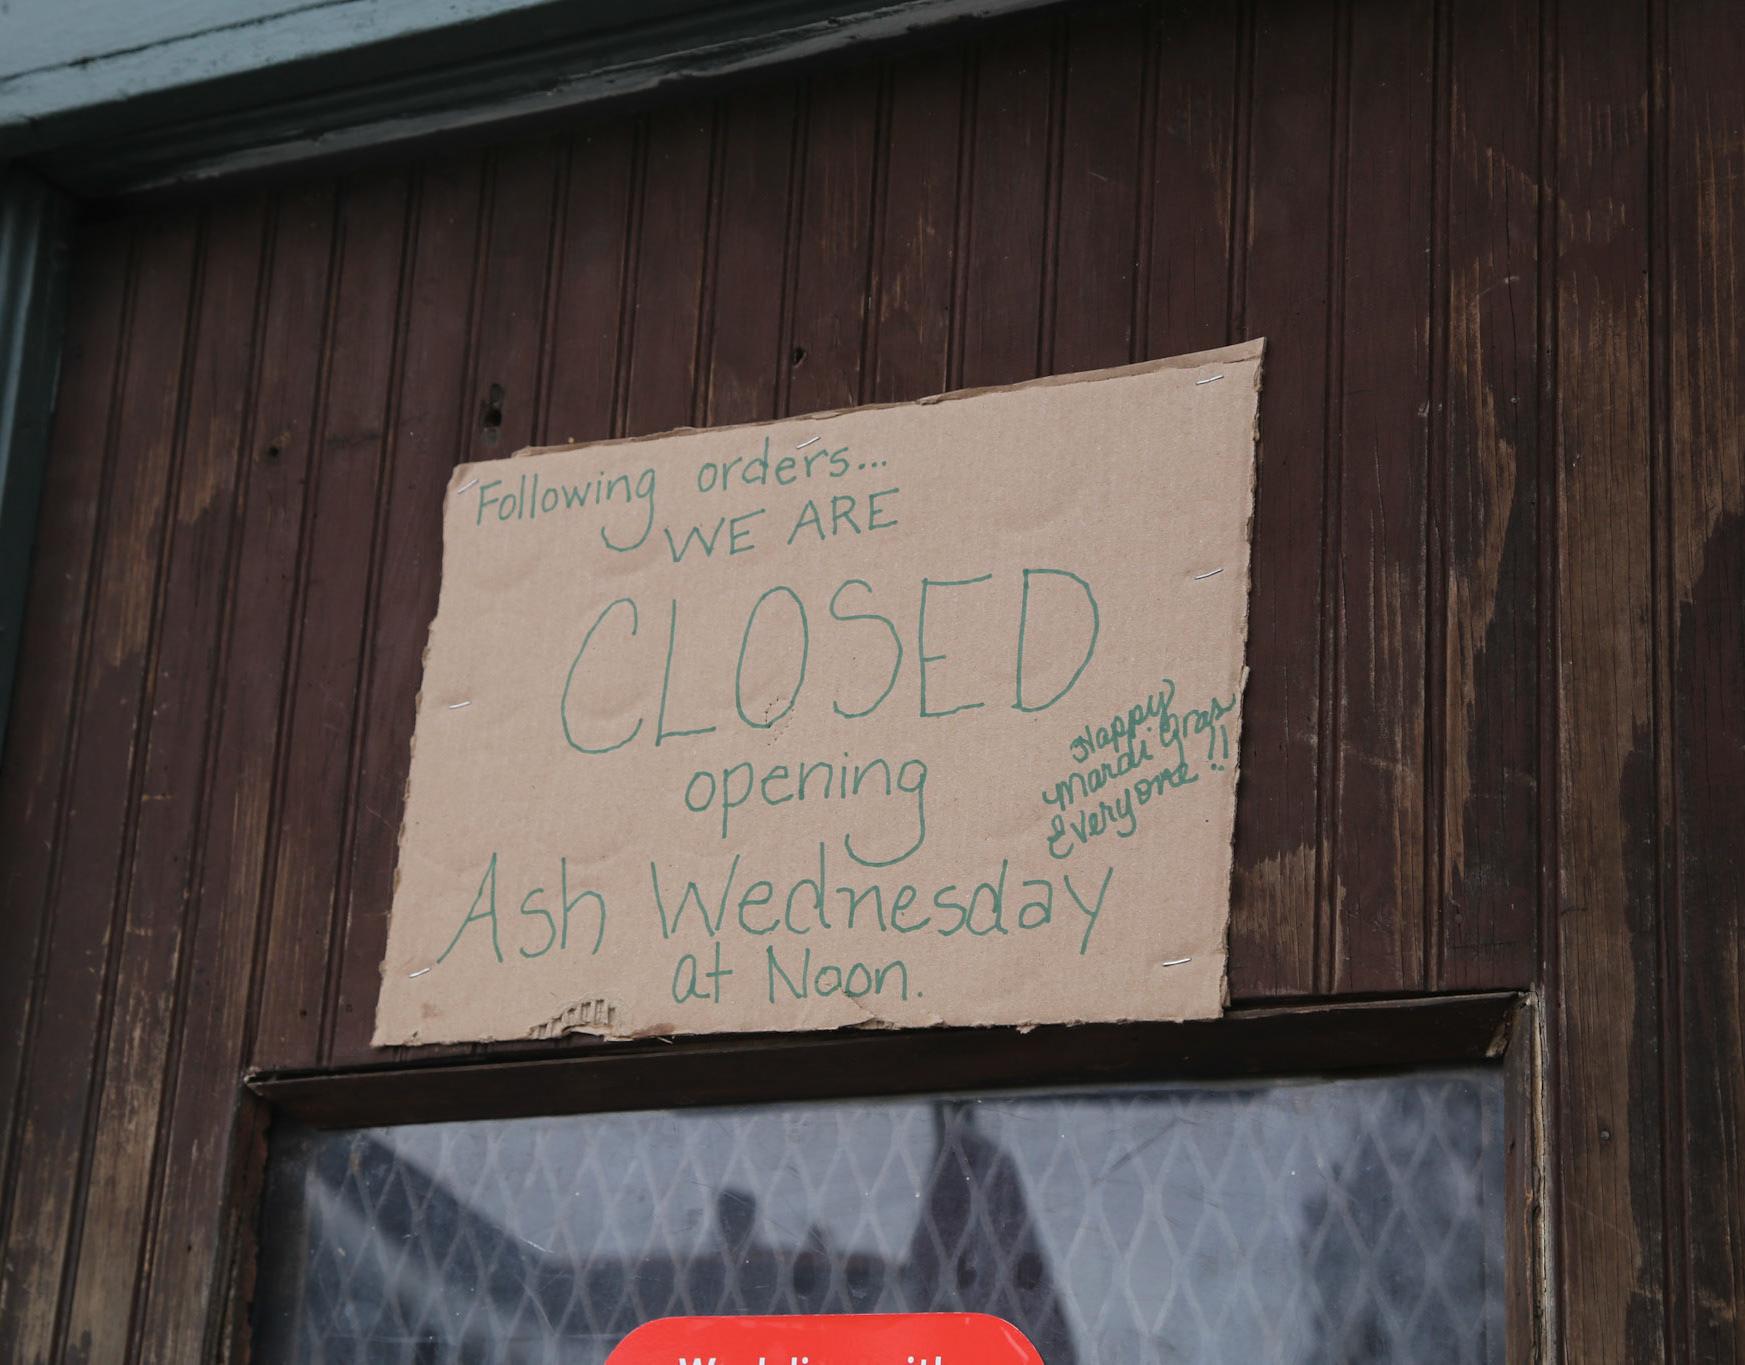 Following orders...
WE ARE
CLOSED
opening
Ash Wednesday
at Noon.
Happy
Mardi Gras
Everyone!!